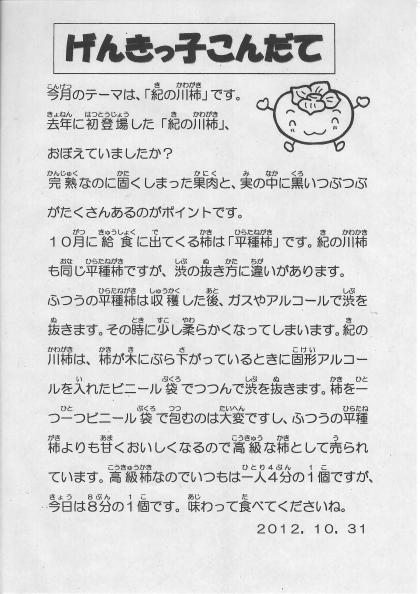 げんきっ子こんだて
今月のテーマは、「紀の川柿」です。
去年に初登場した「紀の川柿」、
おぼえていましたか？
完熟なのに固くしまった果肉と、実の中に黒いつぶつぶ
がたくさんあるのがポイントです。
１０月に給食に出てくる柿は「平種柿」です。紀の川柿
も同じ平種柿ですが、渋の抜き方に違いがあります。
ふつうの平種柿は収穫した後、ガスやアルコールで渋を
抜きます。その時に少し柔らかくなってしまいます。紀の
川柿は、柿が木にぶら下がっているときに固形アルコー
ルを入れたビニール袋でつつんで渋を抜きます。柿を一
つ一つビニール袋で包むのは大変ですし、ふつうの平種
柿よりも甘くおいしくなるので高級な柿として売られ
ています。高級柿なのでいつもは一人４分の１個ですが、
今日は８分の１個です。味わって食べてくださいね。
２０１２．１０．３１